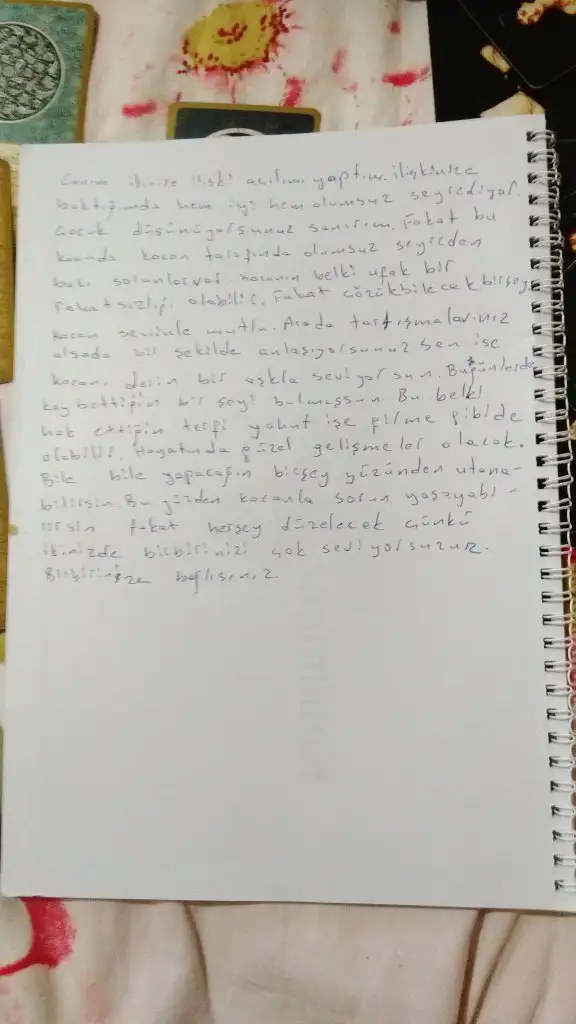 Canım ikinize ilişki açılımı yaptım. ilişkinize
baktığımda hem iyi hem olumsuz seyrediyor.
Çocuk düşünüyorsunuz sanırım. Fakat bu
konuda kocan tarafında olumsuz seyreden
bazı sorunlar var. Kocanın belki ufak bir
rahatsızlığı olabilir. Fakat çözükbilecek birşey
Kocan seninle mutlu. Arada tartışmalarınız
olsada bir şekilde anlaşıyorsunuz Sen ise
kocanı derin bir aşkla seviyorsun. Bugünlerde
kaybettiğin bir şeyi bulmuşsun Bu belki
hak ettiğin terfi yahut işe girme gibide
olabilir. Hayatında güzel gelişmeler olacak.
Bile bile yapacağın birşey yüzünden utana-
bilirsin. Bu yüzden kocanla sorun yaşayabi-
lirsin fakat herşey düzelecek Çünkü
ikinizde birbirinizi çok seviyorsunuz.
Birbirinize bağlısınız